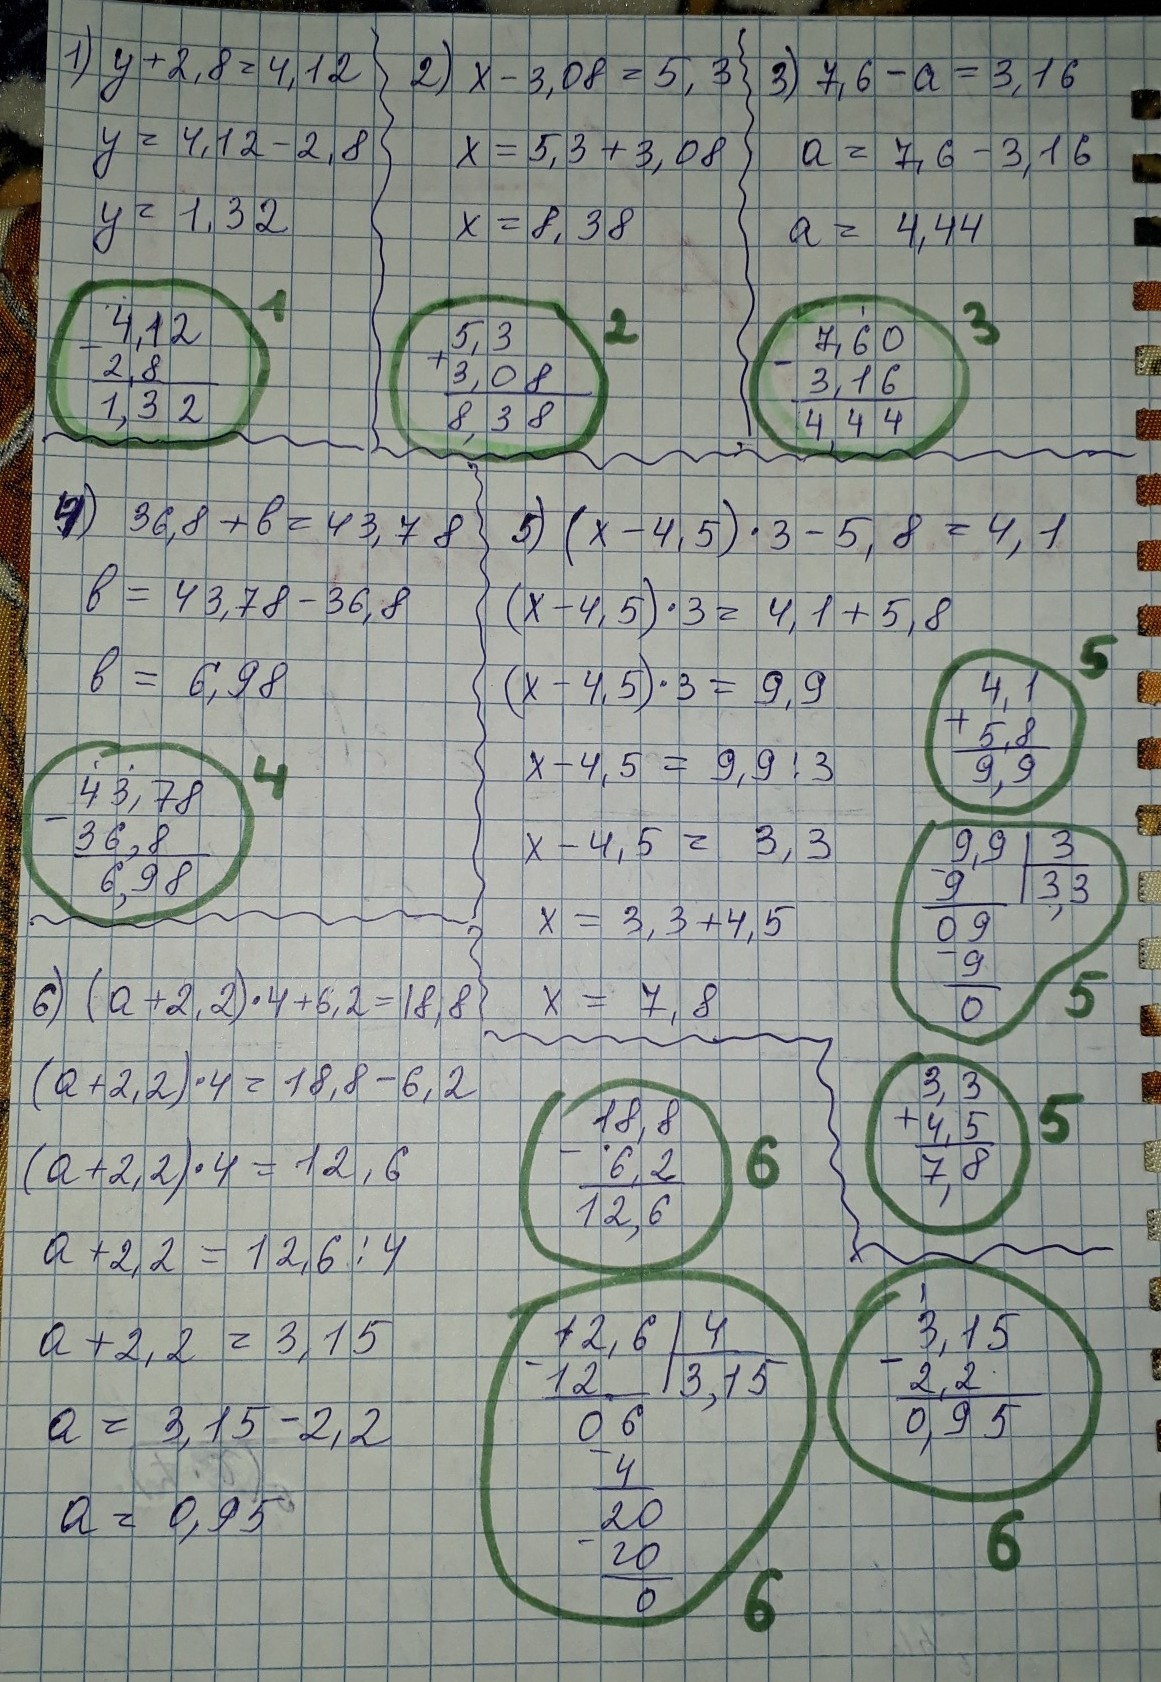 1) y+2,8=4,12
y=4,12-2,8
y=1,32
4,12
-
2,8
1,32
1
2) x-3,08=5,3
x=5,3+3,08
x=8,38
5,3
+
3,08
8,38
2
3) 7,6-a=3,16
a=7,6-3,16
a=4,44
7,60
-
3,16
4,44
3
4) 36,8+в=43,78
в=43,78-36,8
в=6,98
43,78
-
36,8
6,98
4
5) (x-4,5)·3-5,8=4,1
(x-4,5)·3=4,1+5,8
(x-4,5)·3=9,9
x-4,5=9,9:3
x-4,5=3,3
x=3,3+4,5
x=7,8
4,1
+
5,8
9,9
5
9,9 | 3
-9 | 3,3
09
-9
0
5
3,3
+4,5
7,8
5
6) (a+2,2)·4+6,2=18,8
(a+2,2)·4=18,8-6,2
(a+2,2)·4=12,6
a+2,2=12,6:4
a+2,2=3,15
a=3,15-2,2
a=0,95
18,8
-
6,2
12,6
6
12,6 | 4
-12 | 3,15
06
-4
20
-20
0
6
3,15
-
2,2
0,95
6